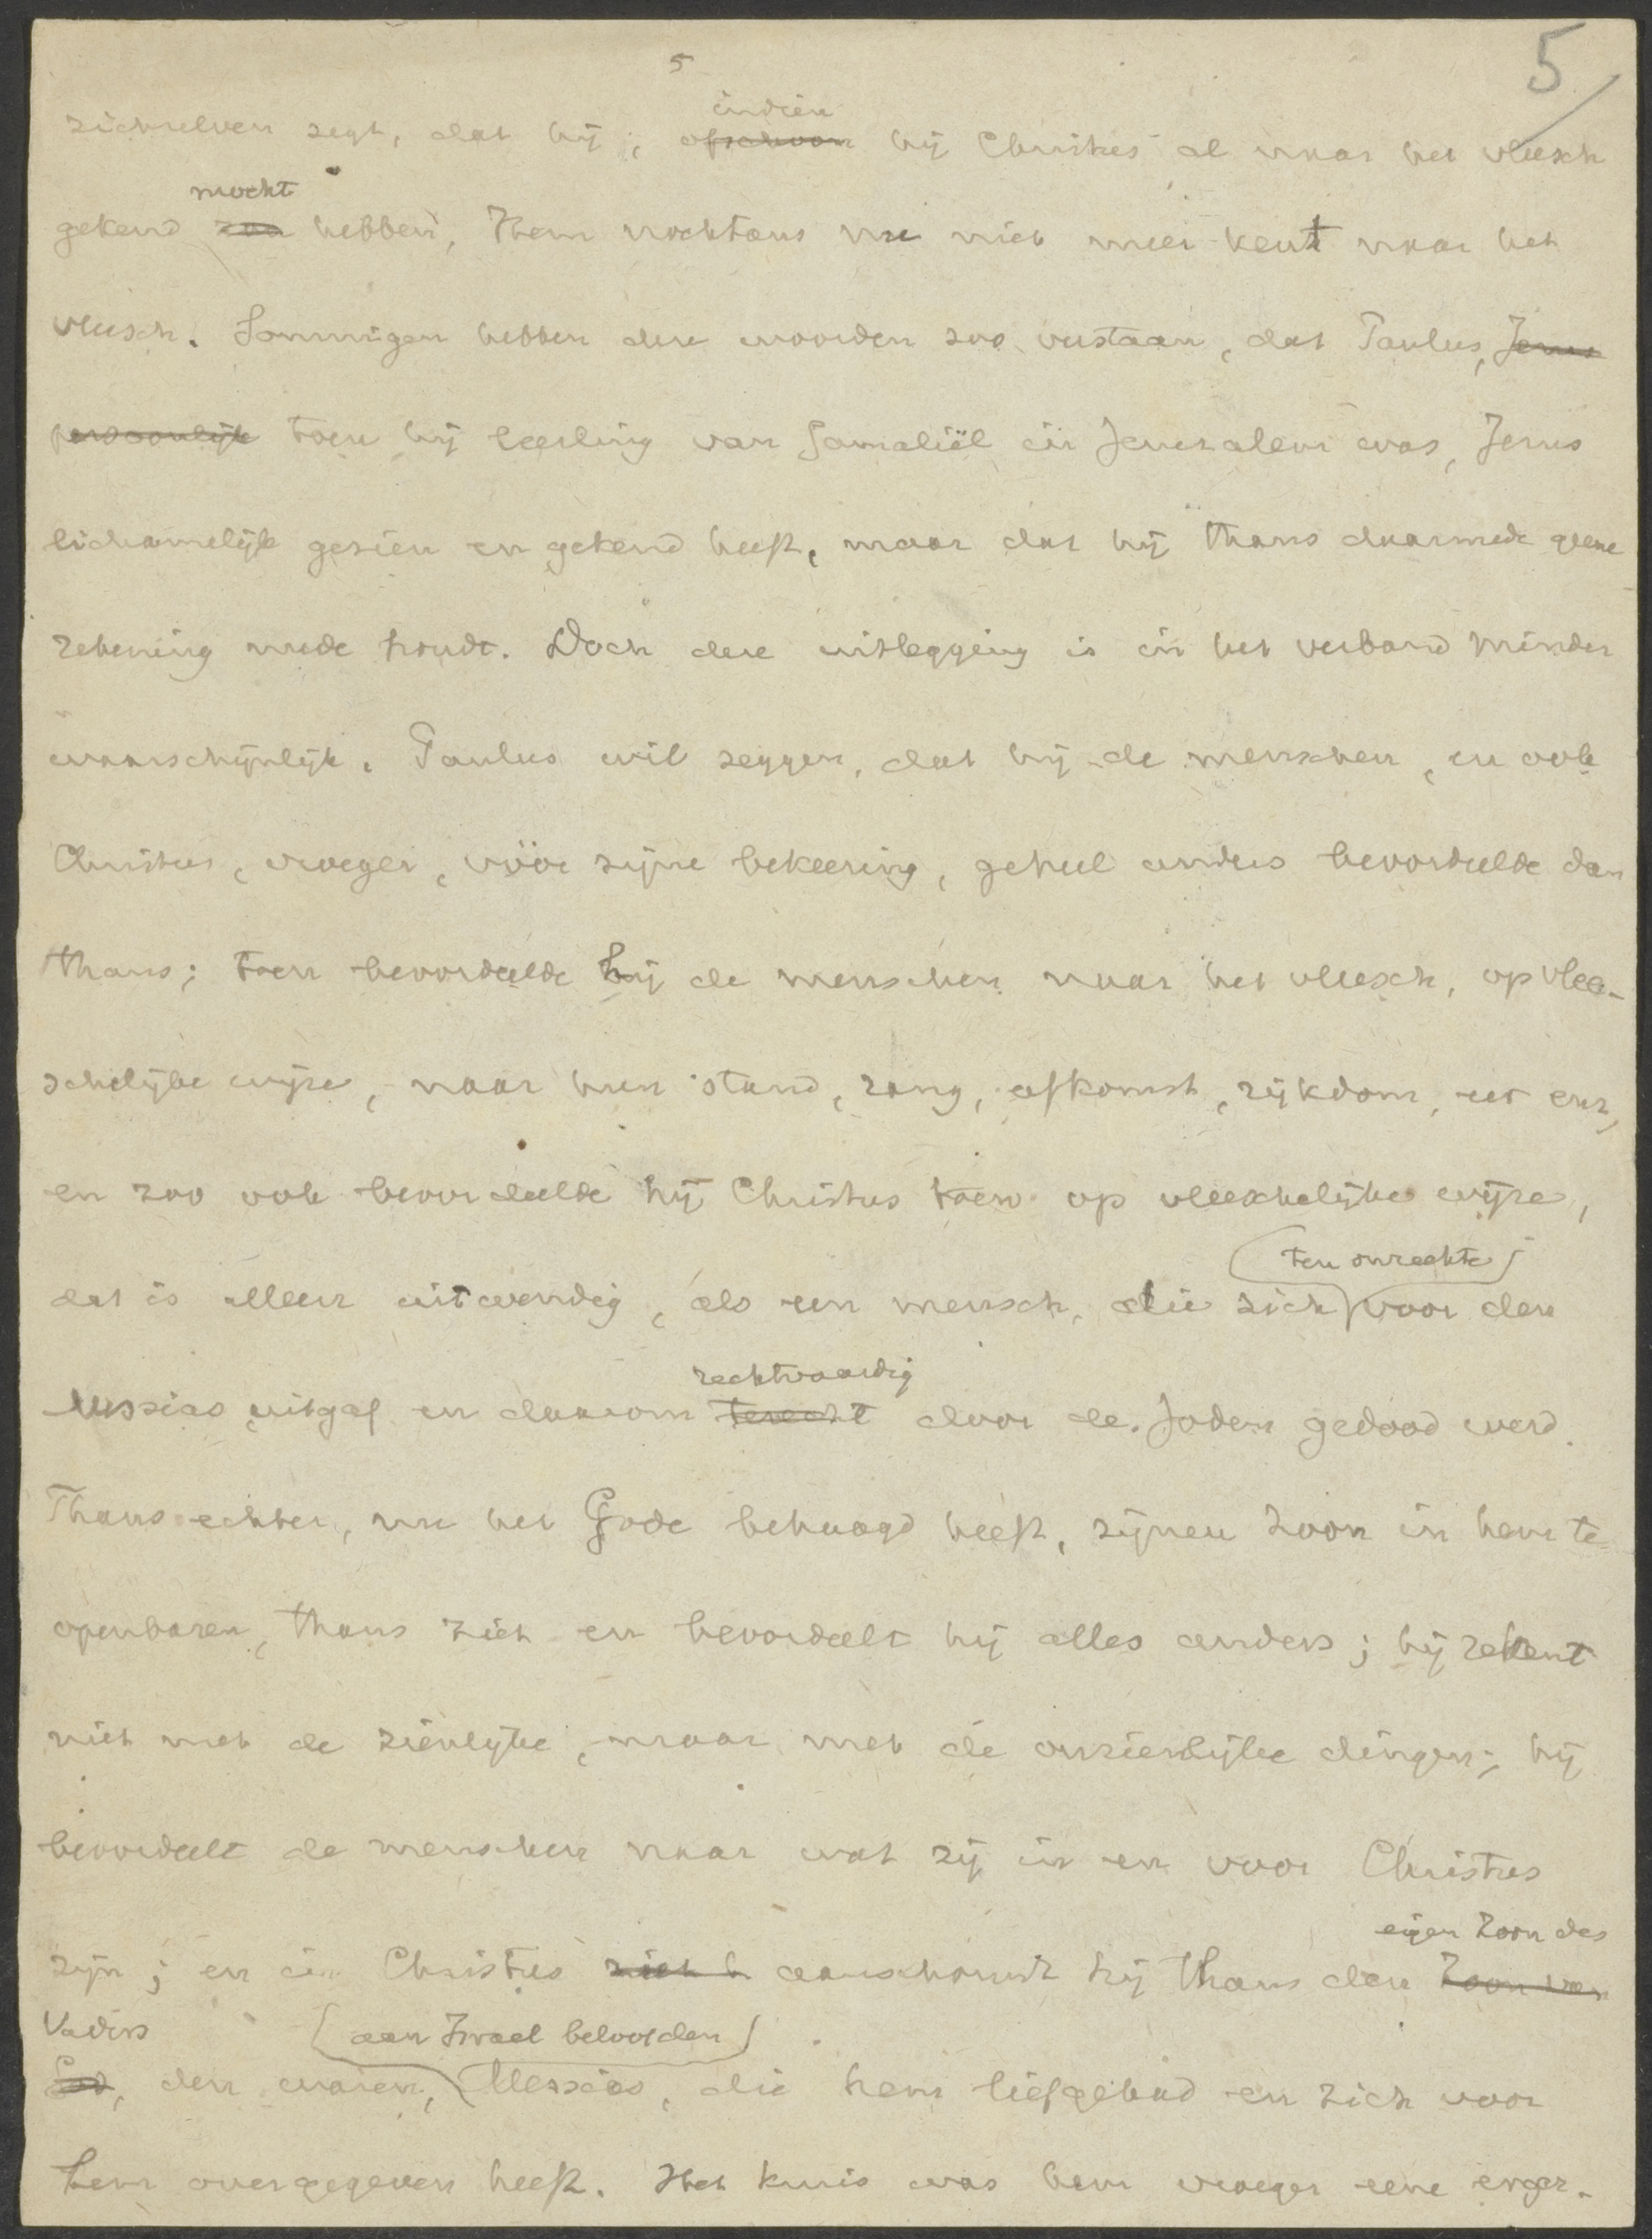 5
5
indien
zichzelven zegt, dat hij, ofschoon hij Christus al naar het vleesch
mocht
gekend zou hebben, Hem nochtans nu niet meer kent naar het
vleesch. Sommigen hebben deze woorden zoo verstaan, dat Paulus, Jezus
persoonlijk toen hij leerling van Gamaliël in Jeruzalem was, Jezus
lichamelijk gezien en gekend heeft, maar dat hij thans daarmede geene
rekening mede houdt. Doch deze uitlegging is in het verband minder
waarschijnlijk. Paulus wil zeggen, dat hij de menschen, en ook
Christus, vroeger, vóór zijne bekeering, geheel anders beoordeelde dan
thans; toen beoordeelde hij de menschen naar het vleesch, op vlee-
schelijke wijze, naar hun stand, rang, afkomst, rijkdom, enz,
en zoo ook beoordeelde hij Christus toen op vleeschelijke wijze,
ten onrechte
dat is alleen uitwendig, als een mensch, die zich voor den
rechtvaardig
Messias uitgaf en daarom terecht door de Joden gedood werd.
Thans echter, nu het Gode behaagd heeft, zijnen Zoon in hem te
openbaren, thans ziet en beoordeelt hij alles anders; hij rekent
niet met de zienlijke, maar met de onzienlijke dingen; hij
beoordeelt de menschen naar wat zij in en voor Christus
eigen Zoon des
zijn; en in Christus ziet h aanschouwt hij thans den Zoon van
Vaders aan Israel beloofden
God, den waren, Messias, die hem liefgehad en zich voor
hem overgegeven heeft. Het kruis was hem vroeger eene erger-